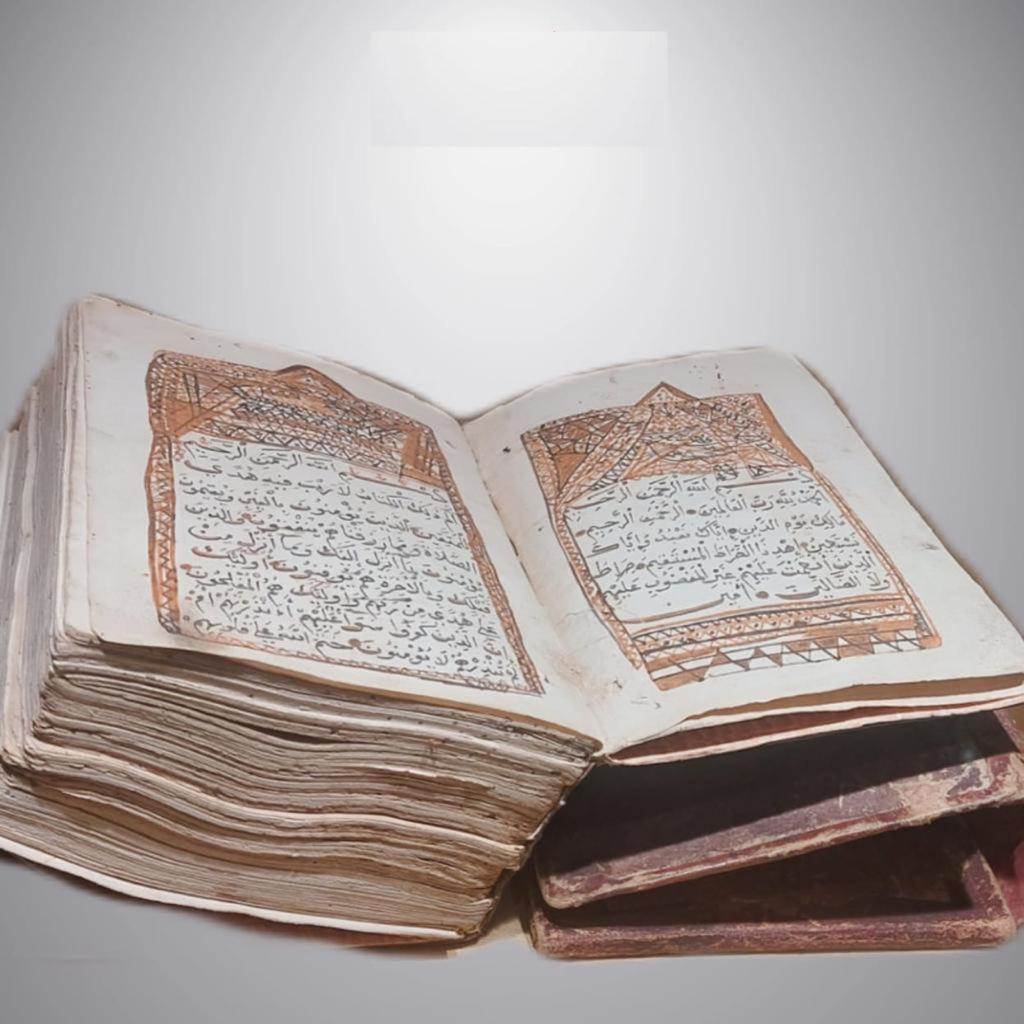 بسم الله الرحمن الرحيم
الحمد لله رب العالمين الرحمن الرحيم
مالك يوم الدين إياك نعبد وإياك
نستعين اهدنا الصراط المستقيم صراط
الذين أنعمت عليهم غير المغضوب عليهم
ولا الضالين امين
بسم الله الرحمن الرحيم
ذلك الكتاب لا ريب فيه هدى
الذين يؤمنون بالغيب ويقيمون
الصلوة ومما رزقناهم ينفقون والذين
يؤمنون بما أنزل إليك وما أنزل من
قبلك وبالآخرة هم يوقنون أولئك
على هدى من ربهم وأولئك هم المفلحون
إن الذين كفروا سواء عليهم أأنذرتهم أم
لم تنذرهم لا يؤمنون